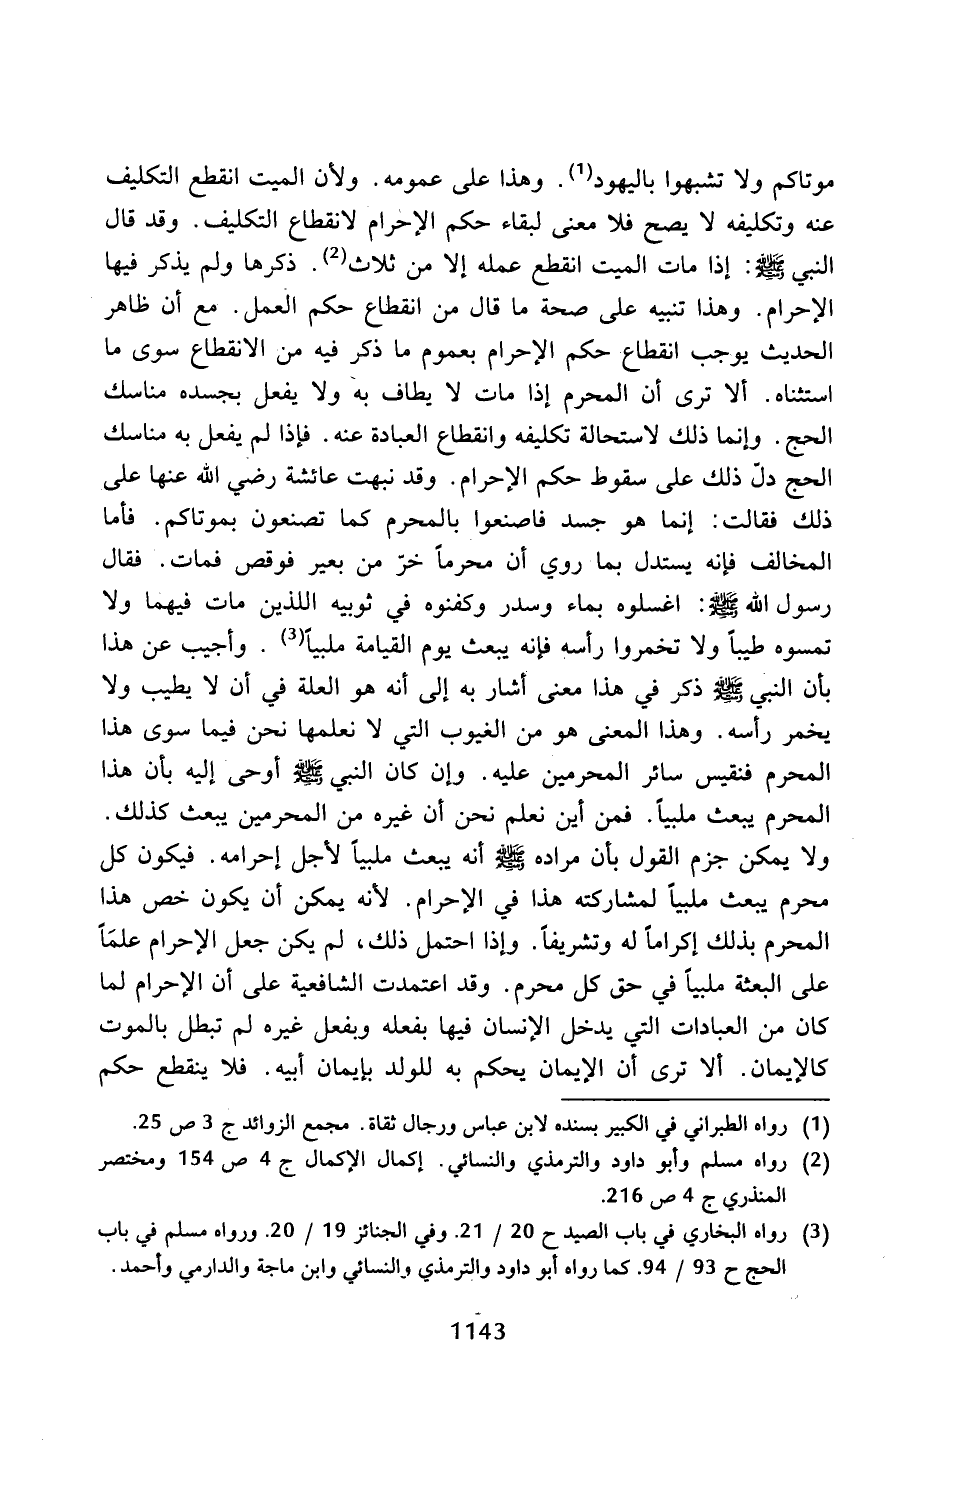 موتاكم ولا تشبهوا باليهود(1). وهذا على عمومه. ولأن الميت انقطع التكليف
عنه وتكليفه لا يصح فلا معنى لبقاء حكم الإحرام لانقطاع التكليف. وقد قال
النبي ﷺ: إذا مات الميت انقطع عمله إلا من ثلاث(2). ذكرها ولم يذكر فيها
الإحرام. وهذا تنبيه على صحة ما قال من انقطاع حكم العمل. مع أن ظاهر
الحديث يوجب انقطاع حكم الإحرام بعموم ما ذكر فيه من الانقطاع سوى ما
استثناه. ألا ترى أن المحرم إذا مات لا يطاف به ولا يفعل بجسده مناسك
الحج. وإنما ذلك لاستحالة تكليفه وانقطاع العبادة عنه. فإذا لم يفعل به مناسك
الحج دلّ ذلك على سقوط حكم الإحرام. وقد نبهت عائشة رضي الله عنها على
ذلك فقالت: إنما هو جسد فاصنعوا بالمحرم كما تصنعون بموتاكم. فأما
المخالف فإنه يستدل بما روي أن محرماً خرّ من بعير فوقص فمات. فقال
رسول الله ﷺ: اغسلوه بماء وسدر وكفنوه في ثوبيه اللذين مات فيهما ولا
تمسوه طيباً ولا تخمروا رأسه فإنه يبعث يوم القيامة ملبياً(3) . وأجيب عن هذا
بأن النبي ﷺ ذكر في هذا معنى أشار به إلى أنه هو العلة في أن لا يطيب ولا
يخمر رأسه. وهذا المعنى هو من الغيوب التي لا نعلمها نحن فيما سوى هذا
المحرم فنقيس سائر المحرمين عليه. وإن كان النبي ﷺ أوحى إليه بأن هذا
المحرم يبعث ملبياً. فمن أين نعلم نحن أن غيره من المحرمين يبعث كذلك.
ولا يمكن جزم القول بأن مراده ﷺ أنه يبعث ملبياً لأجل إحرامه. فيكون كل
محرم يبعث ملبياً لمشاركته هذا في الإحرام. لأنه يمكن أن يكون خص هذا
المحرم بذلك إكراماً له وتشريفاً. وإذا احتمل ذلك، لم يكن جعل الإحرام علمَاً
على البعثة ملبياً في حق كل محرم. وقد اعتمدت الشافعية على أن الإحرام لما
كان من العبادات التي يدخل الإنسان فيها بفعله وبفعل غيره لم تبطل بالموت
كالإيمان. ألا ترى أن الإيمان يحكم به للولد بإيمان أبيه. فلا ينقطع حكم
(1) رواه الطبراني في الكبير بسنده لابن عباس ورجال ثقاة. مجمع الزوائد ج 3 ص 25.
(2) رواه مسلم وأبو داود والترمذي والنسائي. إكمال الإكمال ج 4 ص 154 ومختصر
المنذري ج 4 ص 216.
(3) رواه البخاري في باب الصيد ح 20 / 21. وفي الجنائز 19 / 20. ورواه مسلم في باب
الحج ح 93 / 94. كما رواه أبو داود والترمذي والنسائي وابن ماجة والدارمي وأحمد.
1143